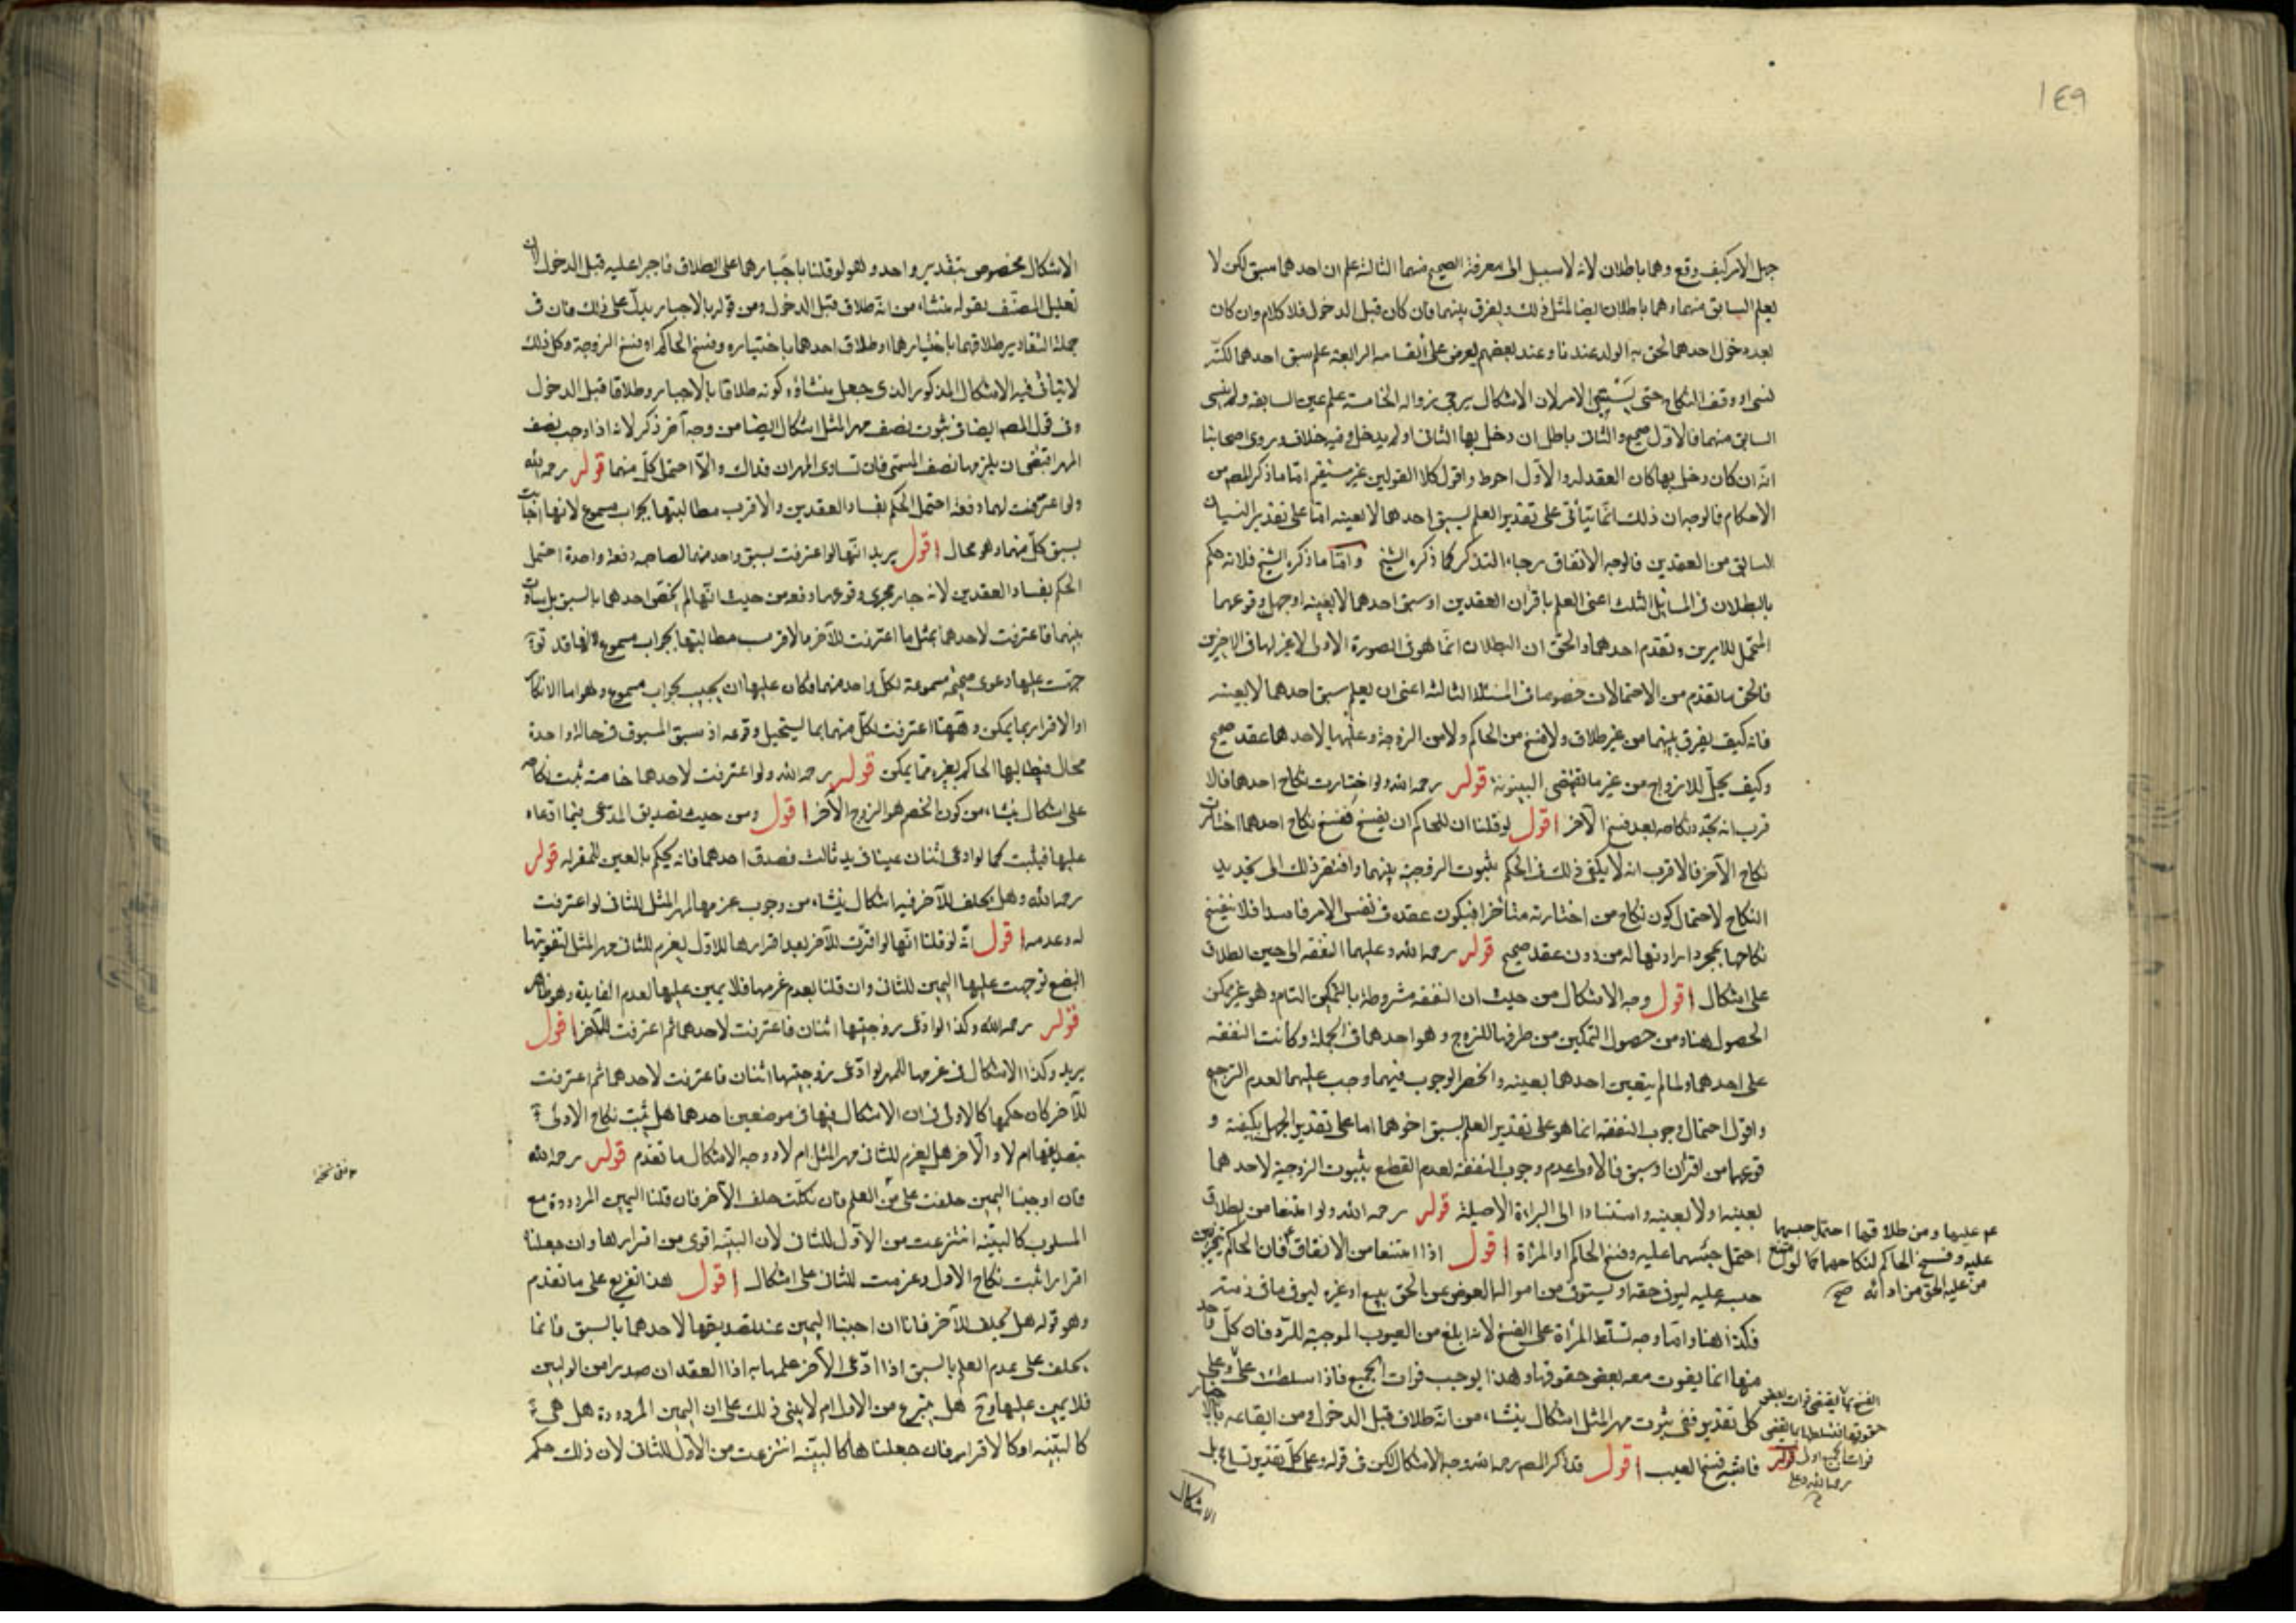 ١٤٩
جهل الامر كيف وقع وهما باطلان لانه لا سبيل الى معرفة الصحيح منهما الثالثة علم ان احدهما سبق لكن لا
يعلم السابق منهما وهما باطلان ايضا لمثل ذلك ويفرق بينهما فان كان قبل الدخول فلا كلام وان كان
بعد دخول احدهما لحق به الولد عندنا وعند بعضهم يعرض على القافه الرابعة علم سبق احدهما لكنه
نسى او وقف النكاح حتى الامر لان الاشكال يرجى زواله الخامسة علم عين السابقه ولم ينسى
السابق منهما فالاول صحيح والثانى باطل ان دخل بها الثانى او لم يدخل وفيه خلاف وروى اصحابنا
انه ان كان دخل بها كان العقد له والاول احوط واقول كلا القولين غير مستقيم امّا ما ذكر المص من
الاحكام فالوجه ان ذلك انّما يتأتى على تقدير العلم بسبق احدهما لا بعينه امّا على تقدير النسيان
السابق من العقدين فالوجه الاتفاق رجاء التذكر كما ذكره الشيخ وامّا ما ذكره الشيخ فلانه حكم
بالبطلان فى المسائل الثلث اعنى العلم باقران العقدين او سبق احدهما لا بعينه او جهل وقوعهما
المحتمل للامرين وتقدم احدهما والحق ان البطلان انّما هو فى الصورة الاولى لا غير لها فى الاخيرين
فالحق ما تقدم من الاحتمالات خصوصا فى المسئلة الثالثة اعنى ان يعلم سبق احدهما لا بعينه
فانه كيف يفرق بينهما من غير طلاق ولا فسخ من الحاكم ولا من الزوجة وعليها لاحدهما عقد صحيح
وكيف يحلّ للازواج من غير ما يقتضى البينونة قوله رحمه الله ولو اختارت نكاح احدهما فالا
قرب انه يجدد نكاحه بعد فسخ الآخر اقول لو قلنا ان للحاكم ان يفسخ ففسخ نكاح احدهما اختارت
نكاح الآخر فالاقرب انه لا يكفى ذلك فى الحكم بثبوت الزوجية بينهما وافتقر ذلك الى تجديد
النكاح لاحتمال كون نكاح من اختارته متأخرا فيكون عقده فى نفس الامر فاسدا فلا ينفسخ
نكاحها بمجرد ارادتها له من دون عقد صحيح قوله رحمه الله وعليهما النفقه الى حين الطلاق
على اشكال اقول وجه الاشكال من حيث ان النفقه مشروطة بالتمكين التام وهو غير ممكن
الحصول هنا ومن حصول التمكين من طرفها للزوج وهو احدهما فى الجملة وكانت النفقه
على احدهما ولما لم يتعين احدهما بعينه وانحصر الوجوب فيهما وجب عليهما لعدم الترجيح
واقول احتمال وجوب النفقه انما هو على تقدير العلم بسبق احدهما اما على تقدير الجهل بكيفية و
قوعهما من اقتران او سبق فالاولى عدم وجوب النفقة لعدم القطع بثبوت الزوجية لاحدهما
بعينه او لا بعينه واستنادا الى البراءة الاصلية قوله رحمه الله ولو امتنعا من الطلاق
احتمل حبسهما عليه وفسخ الحاكم او المرأة اقول اذا امتنعا من الانفاق فان الحاكم
حبسه عليه ليوفى حقه او يستوفى من امواله العوض عن الحق ببيع او غيره ليوفى ما فى ذمته
فكذا هنا وامّا وجه تسلّط المرأة على الفسخ لانه ابلغ من العيوب الموجبة للرّد فان كلّ واحد
منها انما يفوت معه بعض حقوقها وهذا يوجب فوات الجميع فاذا تسلطت على
كل تقدير ففى ثبوت مهر المثل اشكال ينشاء من انّه طلاق قبل الدخول ومن ايقاعه بالاجبار
فاشبه فسخ العيب اقول قد ذكر المصر رحمه الله وجه الاشكال لكن فى قوله وعلى كل تقدير تسامح بل
الاشكال
عليهما ومن طلاقهما احتمل حبسهما
عليه وفسخ الحاكم لنكاحهما كما لو امتنع
من عليه الحق من ادائه صح
الفسخ بما يقتضى فوات بعض
حقوقها فتسلطها بما يقتضى
فوات الجميع اولى قوله
رحمه الله وعلى
الاشكال مخصوص بتقدير واحد وهو لو قلنا باجبارهما على الطلاق فاجبرا عليه قبل الدخول لان
تعليل المصنّف بقوله ينشاء من انّه طلاق قبل الدخول ومن قوله بالاجبار يدلّ على ذلك فان فى
جملة التقادير طلاقهما باختيارهما او طلاق احدهما باختياره وفسخ الحاكم او فسخ الزوجة وكل ذلك
لا يتأتى فيه الاشكال المذكور الذى جعل ينشاؤه كونه طلاقا بالاجبار وطلاقا قبل الدخول
وفى قول المصر ايضا فى ثبوت نصف مهر المثل اشكال ايضا من وجه آخر ذكر لانه اذا وجب نصف
المهر اقتضى ان يلزمها نصف المسمّى فان تساوى المهران فذاك والّا احتمل كلّ منهما قوله رحمه الله
ولو اعترفت لهما دفعة احتمل الحكم بفساد العقدين والاقرب مطالبتها بجواب مسموع لانها اجابت
بسبق كلّ منهما وهو محال اقول يريد انّها لو اعترفت بسبق واحد منهما لصاحبه دفعة واحدة احتمل
الحكم بفساد العقدين لانه جار مجرى وقوعهما دفعه من حيث انّها لم تخصّ احدهما بالسبق بل ساوت
بينهما فاعترفت لاحدهما بمثل ما اعترفت للآخر والاقرب مطالبتها بجواب مسموع لانها قد توّ
جهت عليها دعوى صحيحة مسموعة لكلّ واحد منهما فكان عليها ان تجيب بجواب مسموع وهو اما الانكار
او الاقرار بما يمكن وههنا اعترفت لكلّ منهما بما يستحيل وقوعه اذ سبق المسبوق فى حالة واحدة
محال فيطالبها الحاكم بغيره ممّا يمكن قوله رحمه الله ولو اعترفت لاحدهما خاصة ثبت نكاحه
على اشكال ينشاء من كون الخصم هو الزوج الآخر اقول ومن حيث تصديق المدّعى فيما ادّعاه
عليها فيثبت كما لو ادعى اثنان عينا فى يد ثالث فصدق احدهما فانه يحكم بالعين للمقر له قوله
رحمه الله وهل يحلف للآخر فيه اشكال ينشاء من وجوب غرمها المهر المثل للثانى لو اعترفت
له وعدمه اقول انّه لو قلنا انّها لو اقرّت للآخر بعد اقرارها للاوّل يغرم للثانى مهر المثل لتفويتها
البضع توجهت عليها اليمين للثانى وان قلنا بعدم غرمها فلا يمين عليها لعدم الفايدة وهو ظاهر
قوله رحمه الله وكذا لو ادّعى زوجيّتها اثنان فاعترفت لاحدهما ثم اعترفت للآخر اقول
يريد وكذا الاشكال فى غرمها للمهر لو ادّعى زوجيّتها اثنان فاعترفت لاحدهما ثم اعترفت
للآخر كان حكمها كالاولى فى ان الاشكال فيها فى موضعين احدهما هل ثبت نكاح الاول
بتصديقها ام لا والآخر هل يغرم للثانى مهر المثل ام لا ووجه الاشكال ما تقدم قوله رحمه الله
فان اوجبنا اليمين حلفت على نفى العلم فان نكلت حلف الآخر فان قلنا اليمين المردودة مع
المسلوب كالبيّنه انتزعت من الآوّل للثانى لان البيّنه اقوى من اقرارها وان جعلناه
اقرارا ثبت نكاح الاول وغرمت للثانى على اشكال اقول هذا تفريع على ما تقدم
وهو قوله هل يحلف للآخر فانا ان احببنا اليمين عند تصديقها لاحدهما بالسبق فانما
يحلف على عدم العلم بالسبق اذا ادّعى الآخر علمها به اذا العقدان صدرا من الوليين
فلا يمين عليها وح هل ينزع من الاول ام لا يبنى ذلك على ان اليمين المردودة هل هى
كالبيّنه او كالاقرار فان جعلناها كالبيّنه انتزعت من الآوّل للثانى لان ذلك حكم